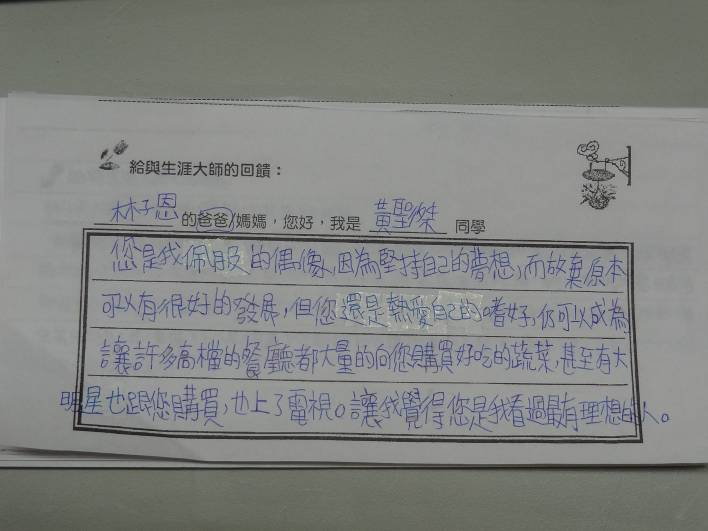 給與生涯大師的回饋：
林子恩 的爸爸/媽媽，您好，我是 黃聖傑 同學
您是我佩服的偶像，因為堅持自己的夢想，而放棄原本
可以有很好的發展，但您還是熱愛自己的嗜好，仍可以成為
讓許多高檔的餐廳都大量的向您購買好吃的蔬菜，甚至有大
明星也跟您購買，也上了電視。讓我覺得您是我看過最有理想的人。